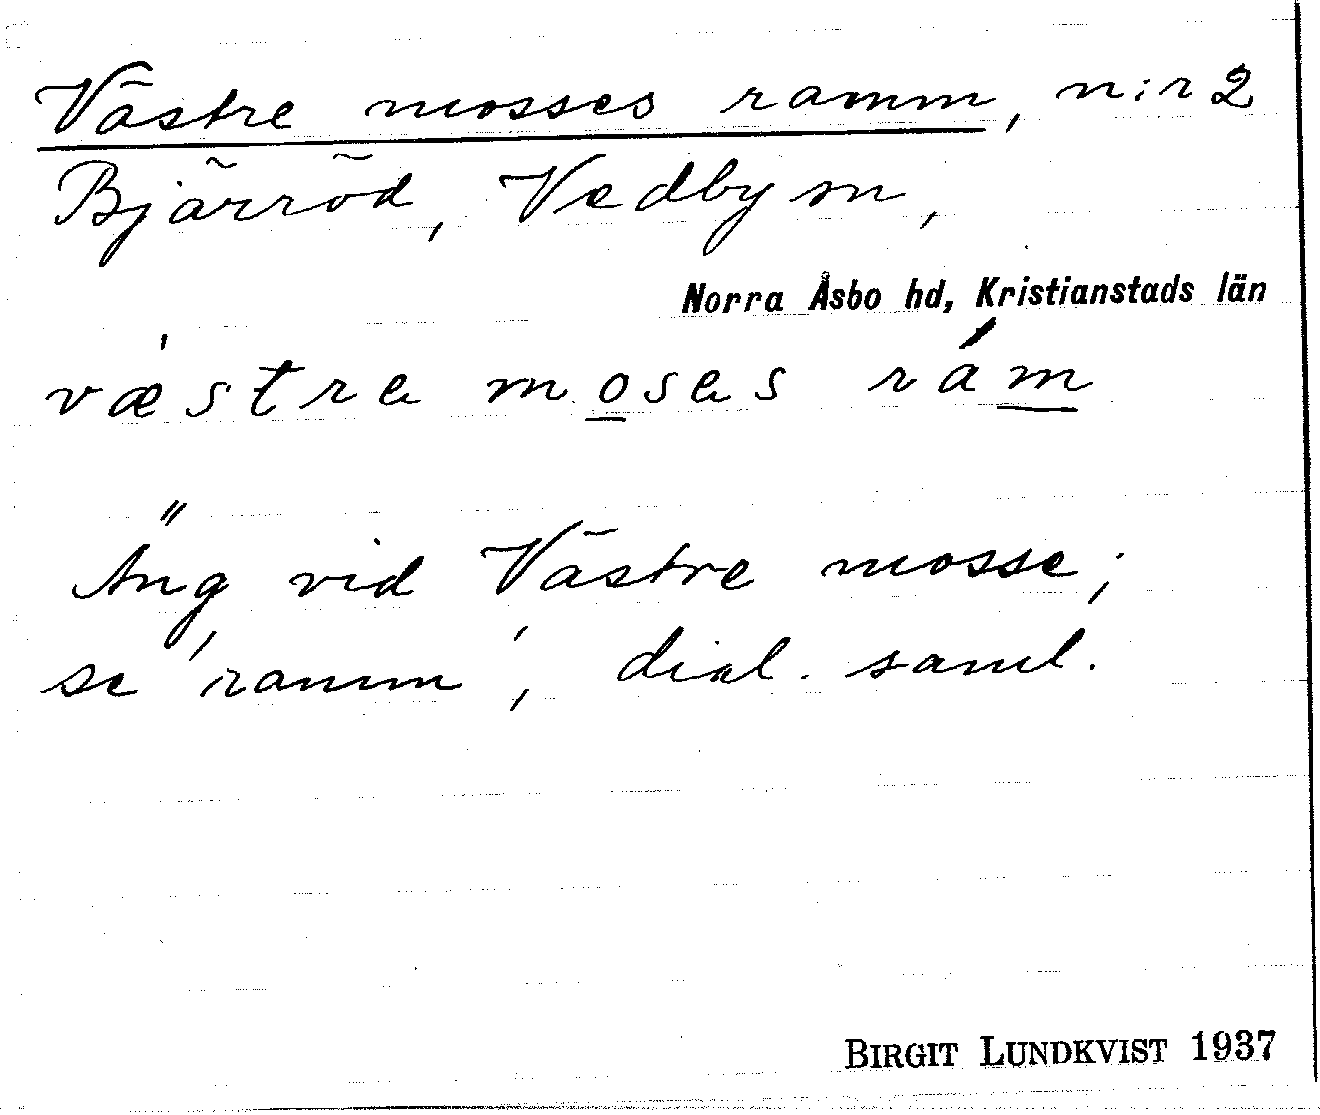 Västre mosses ramm, n:r 2
Bjärröd, Vedby sn,
Norra Åsbo hd, Kristianstads län
vǽstre moses rám
Äng vid Västre mosse;
se 'ramm', dial. saml.
BIRGIT LUNDKVIST 1937